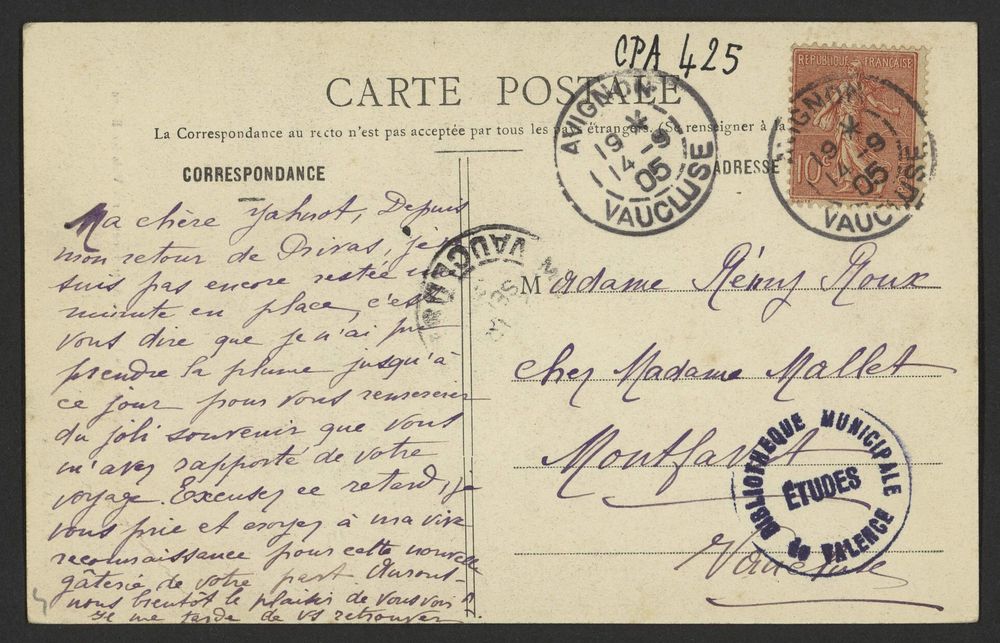 CPA 425
CARTE POSTALE
La Correspondance au recto n'est pas acceptée par tous les pays étrangers. (Se renseigner à la
CORRESPONDANCE
ADRESSE
REPUBLIQUE FRANÇAISE
10c
AVIGNON
19 * 9
14 05
VAUCLUSE
AVIGNON
19 * 9
14 05
VAUCLUSE
VAUCL
Ma chère Yahnot, Depuis
mon retour de Privas, je
suis pas encore restée
minute en place, c'est
vous dire que je n'ai pu
prendre la plume jusqu'à
ce jour pour vous remercier
du joli souvenir que vous
m'avez rapporté de votre
voyage. Excusez ce retard, je
vous prie et croyez à ma vive
reconnaissance pour cette nouvelle
gâterie de votre part Aurons-
nous bientôt le plaisir de vous voir
Il me tarde de vs retrouver
Madame Rémy Roux
chez Madame Mallet
Montfavet
Vaucluse
BIBLIOTHEQUE MUNICIPALE
ÉTUDES
de VALENCE